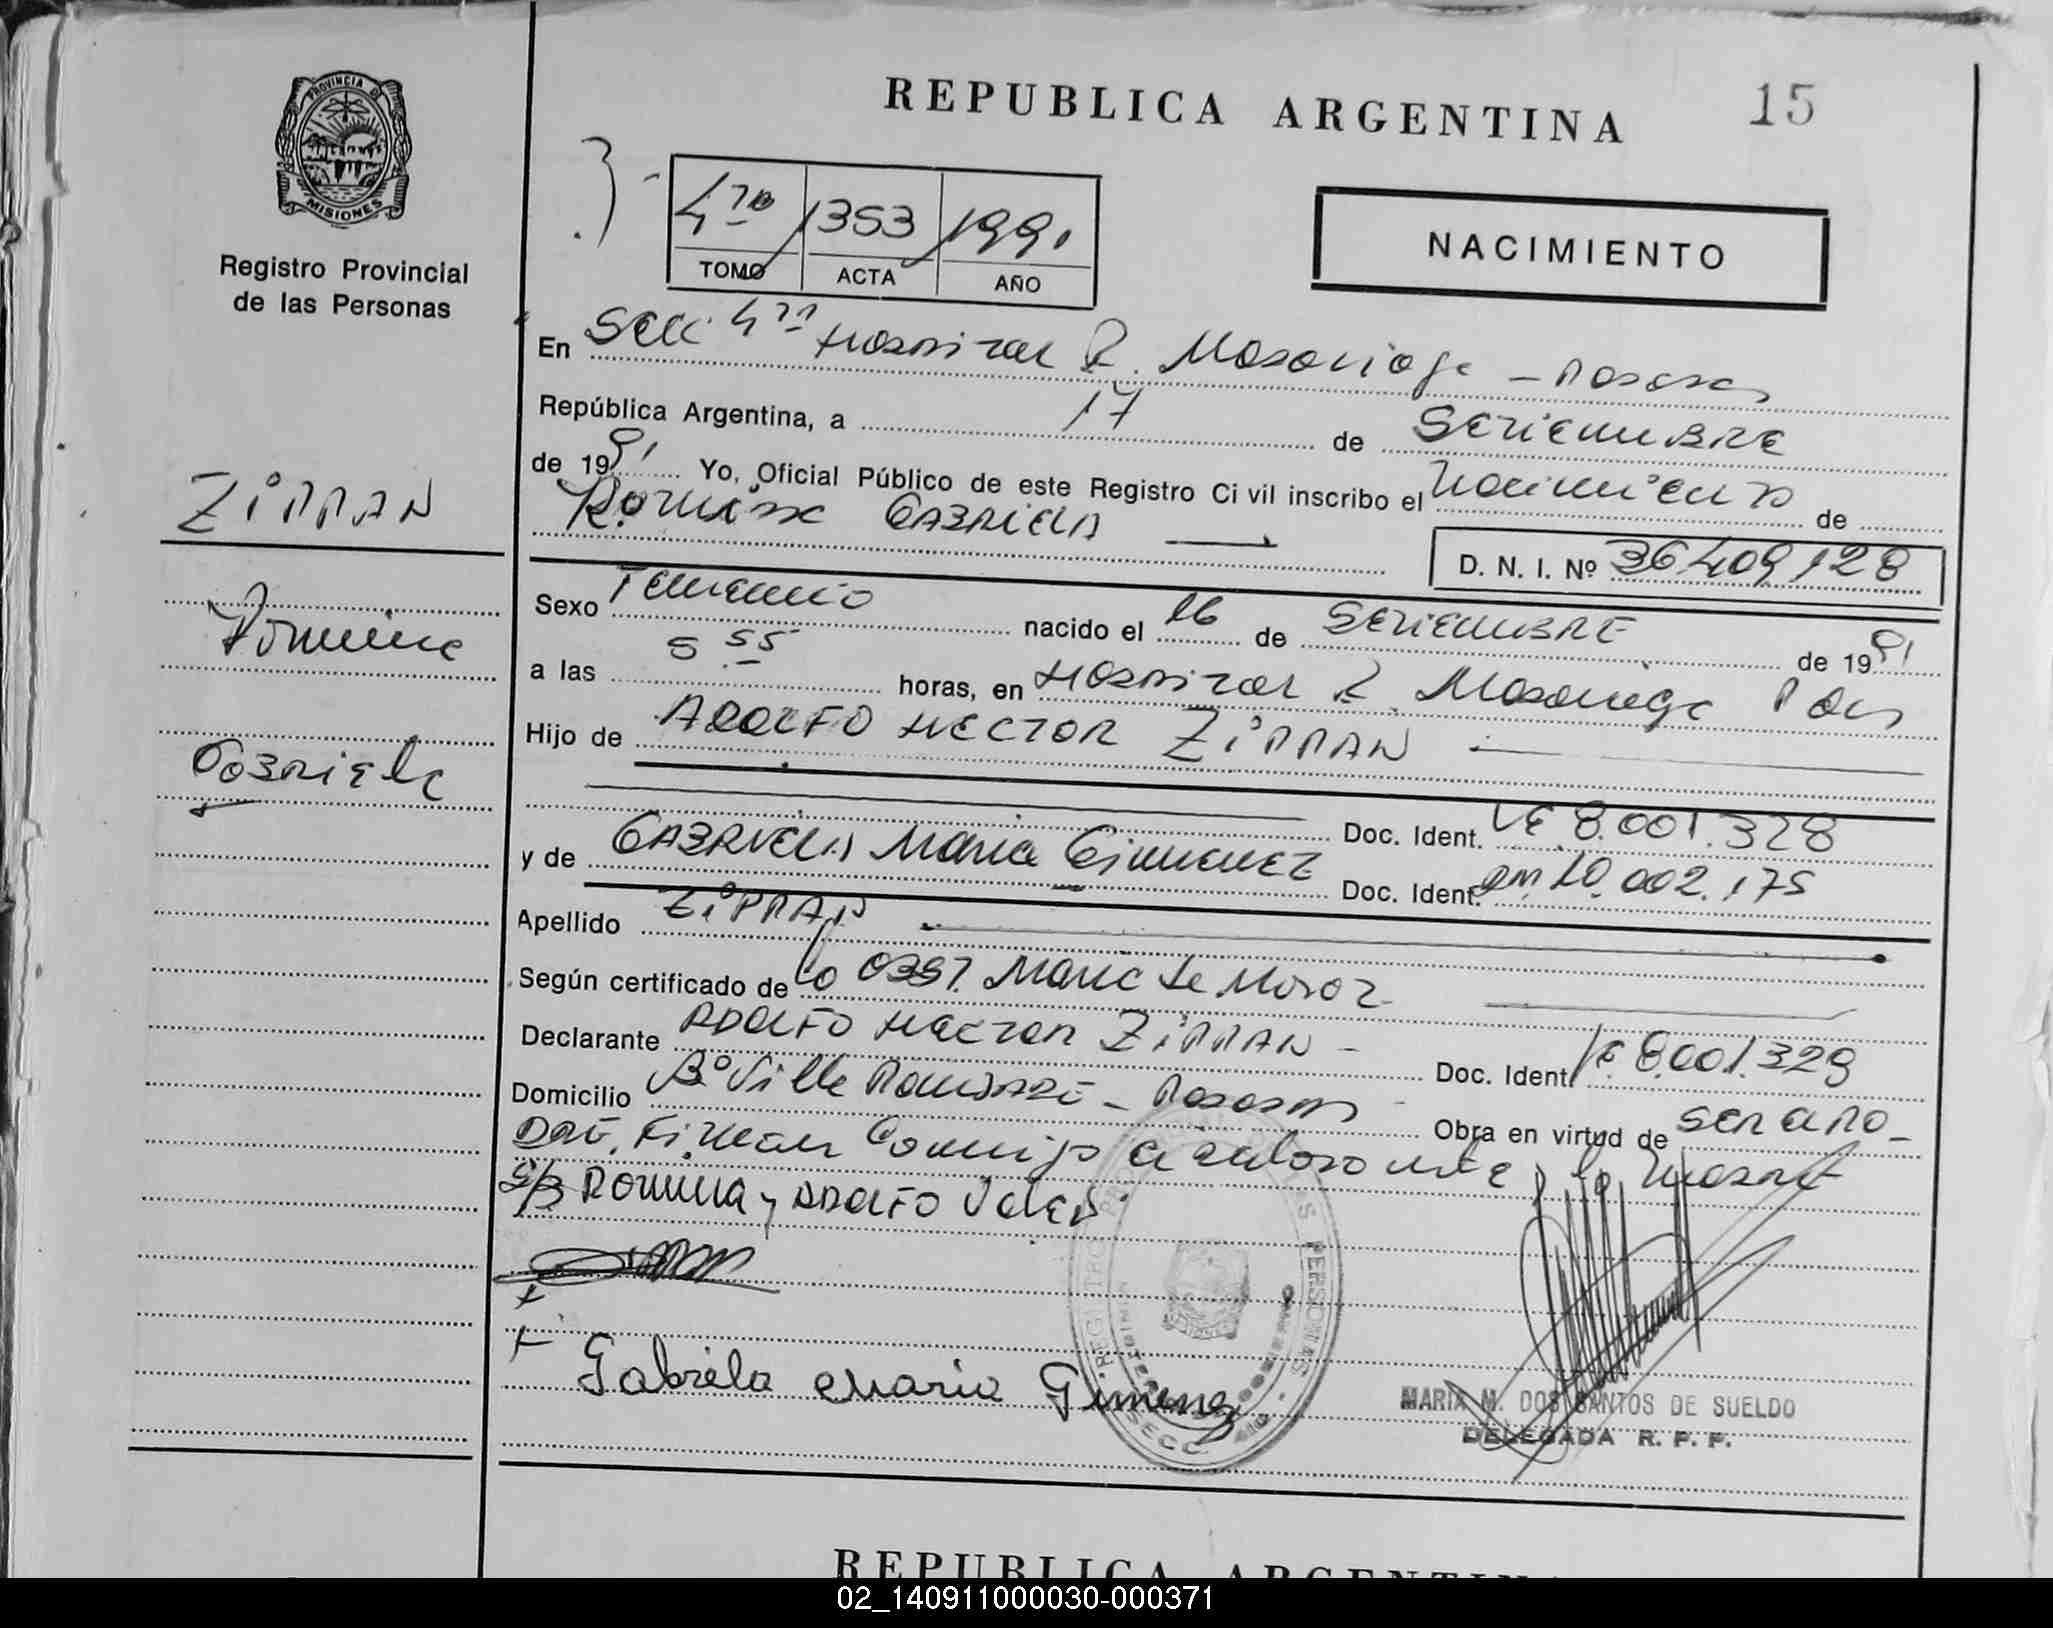 REPUBLICA ARGENTINA
15
PROVINCIA DE
MISIONES
Registro Provincial
de las Personas
4to 1353 1991
TOMO ACTA AÑO
NACIMIENTO
En Secc 4ta Hospital R. Madariaga - Posadas
República Argentina, a 17 de SETIEMBRE
de 1991 Yo, Oficial Público de este Registro Ci vil inscribo el Nacimiento de
Romina GABRIELA
D. N. I. Nº 36.409.128
ZiPPAN
Romina
Gabriela
Sexo Femenino nacido el 16 de SETIEMBRE de 1991
a las 5 55 horas, en Hospital R. Madariaga Pdas
Hijo de ADOLFO HECTOR ZiPPAN
Doc. Ident. LE 8.001.328
y de GABRIELA Maria Gimenez Doc. Ident. DNI 10.002.175
Apellido ZiPPAN
Según certificado de la Obst. Maria de
Declarante ADOLFO HECTOR ZiPPAN - Doc. Ident LE 8.001.329
Domicilio Bº Villa - Posadas Obra en virtud de SER EL PA-
DRE. Firman Conmigo el declarante y la Madre
S/B Romina y ADOLFO Valen
Gabriela Maria Gimenez
REGISTRO PERSONAS
SECC
MARIA M. DOS SANTOS DE SUELDO
DELEGADA R. P. P.
REPUBLICA ARGENTINA
02_140911000030-000371